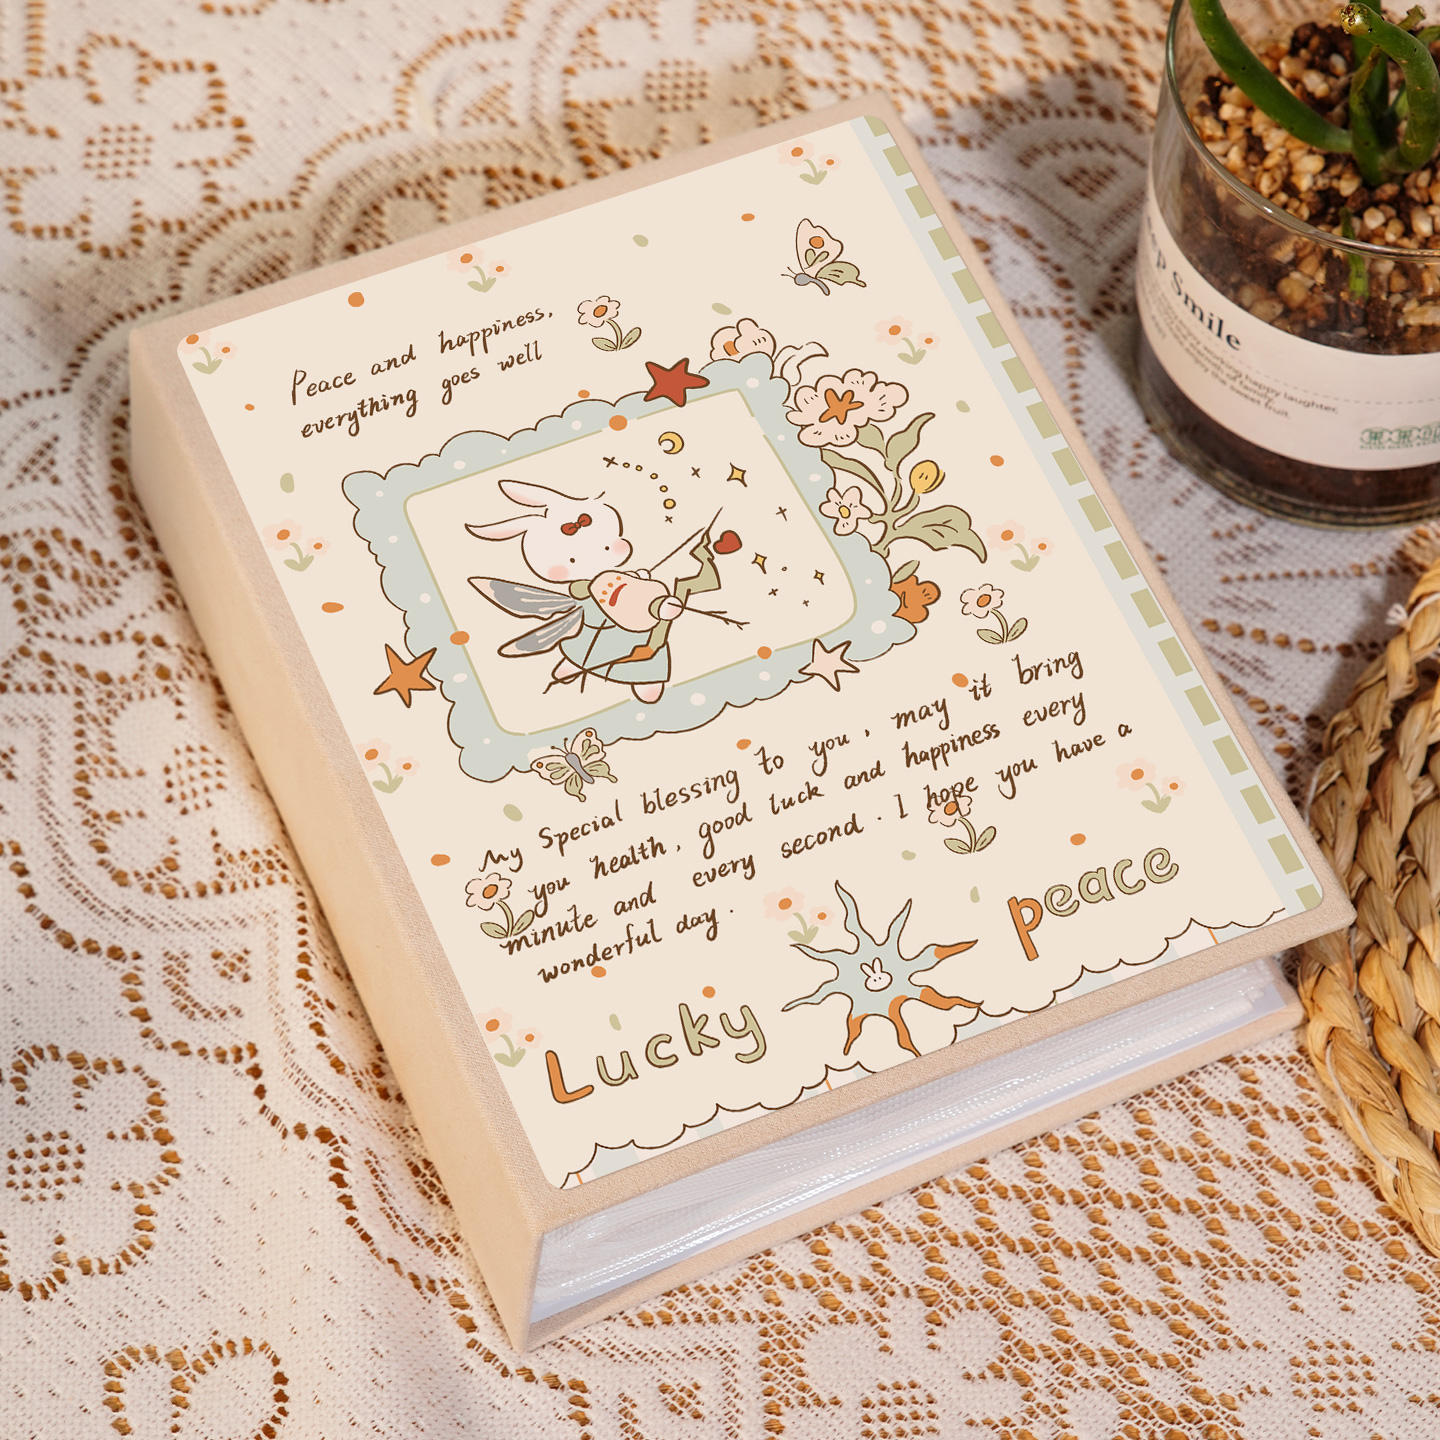 Peace and happiness,
everything goes well
My Special blessing to you, may it bring
you health, good luck and happiness every
minute and every second. I hope you have a
wonderful day.
Lucky peace
Smile
happy laughter,